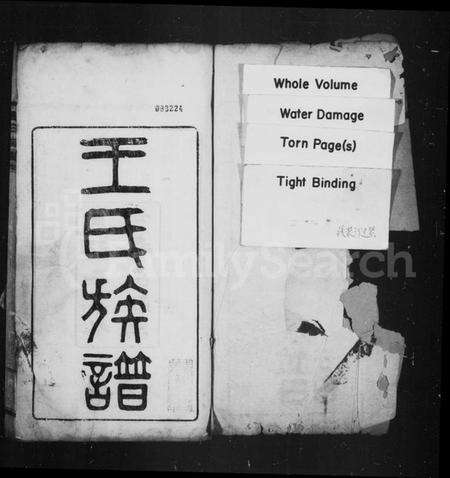 083224
王氏族譜
Whole Volume
Water Damage
Torn Page(s)
Tight Binding
FamilySearch